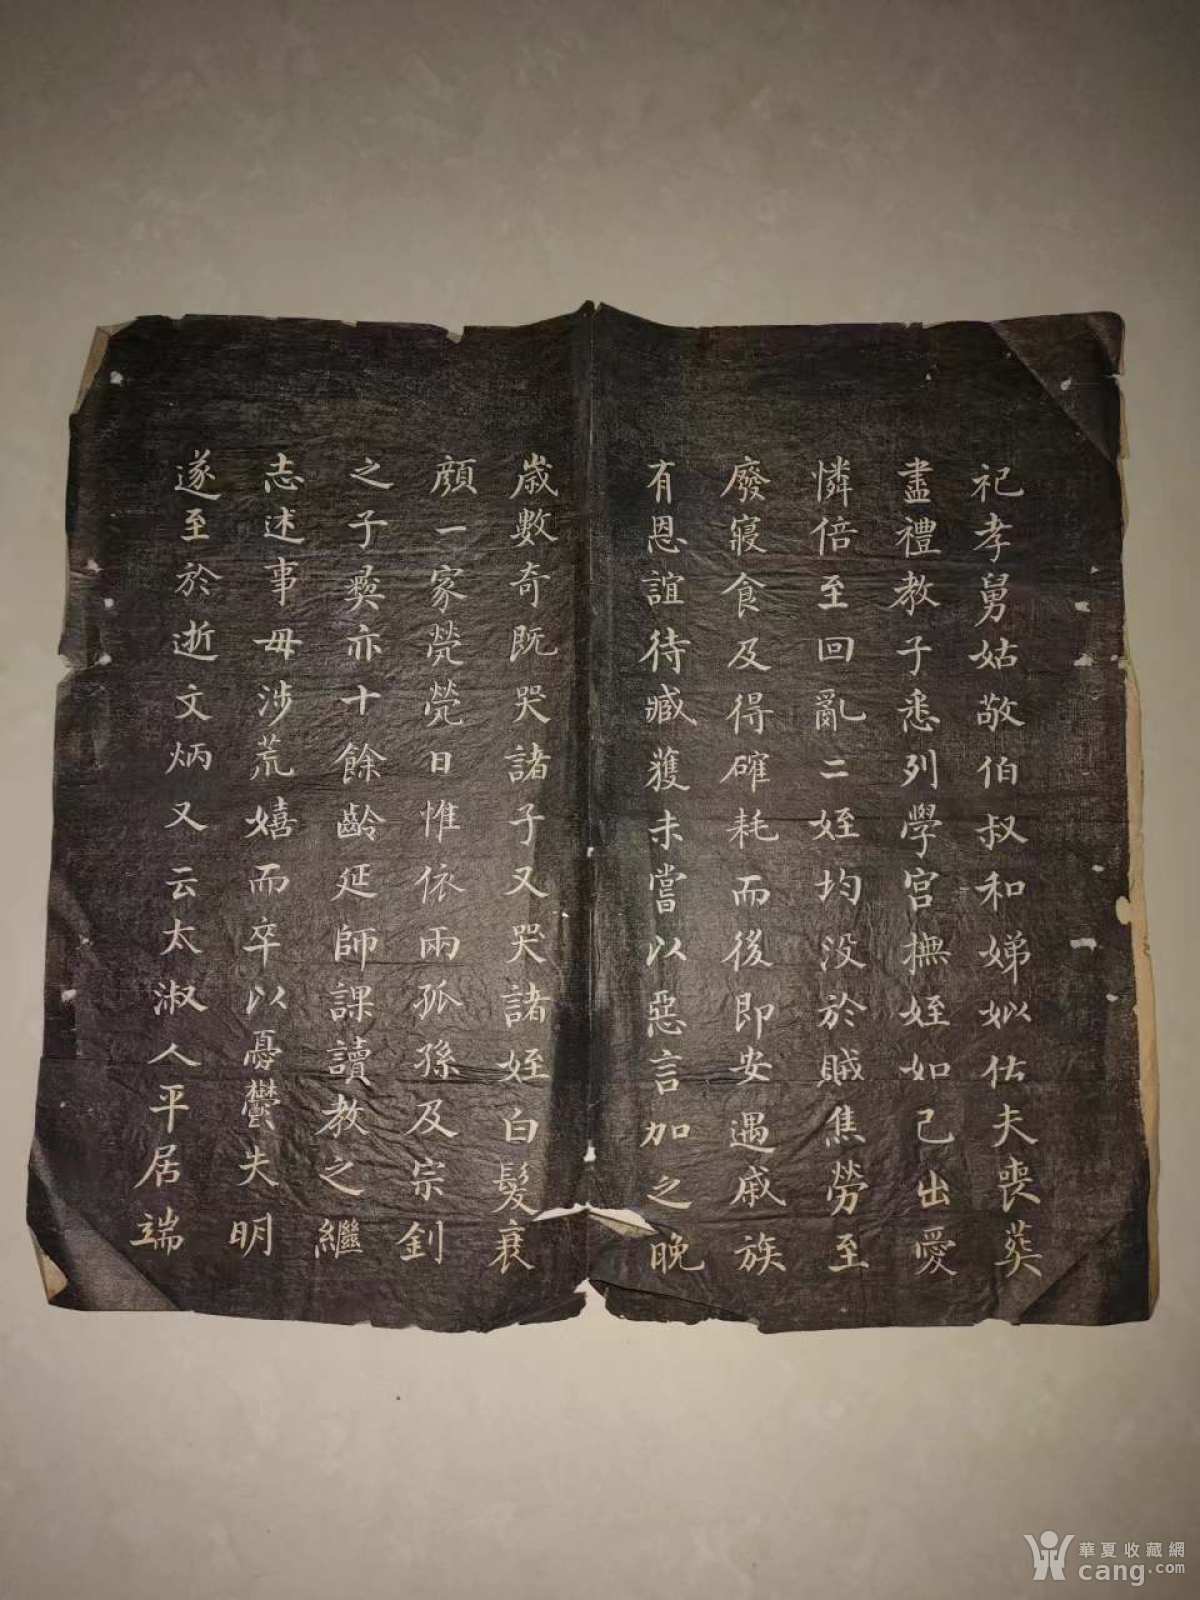 祀孝舅姑敬伯叔和娣姒佐夫喪葬
盡禮教子悉列學宮撫姪如己出愛
憐倍至回亂二姪均没於賊焦勞至
廢寢食及得確耗而後即安遇戚族
有恩誼待臧獲未嘗以惡言加之晚
歲數奇既哭諸子又哭諸姪白髮衰
顏一家煢煢日惟依兩孤孫及宗釗
之子奰亦十餘齡延師課讀教之繼
志述事毋涉荒嬉而卒以憂鬱失明
遂至於逝文炳又云太淑人平居端
華夏收藏網
cang.com